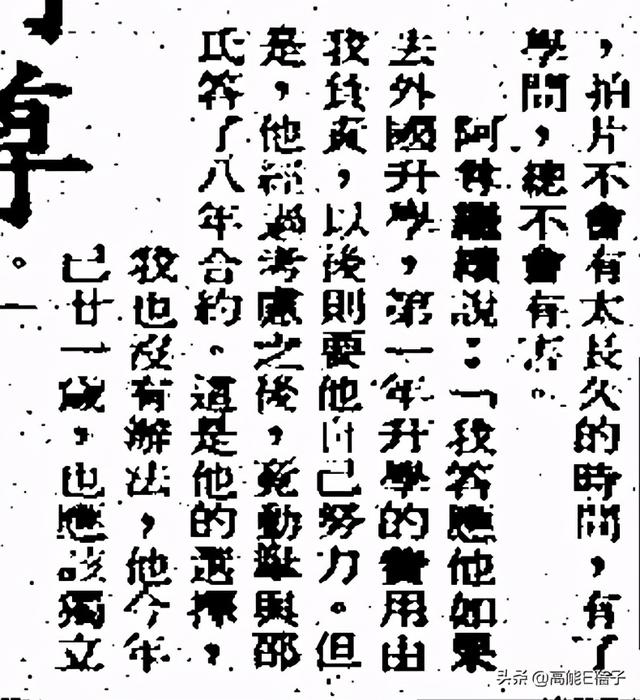 ，拍片不會有太長久的時間，有了
學問，總不會有害。
阿尊繼續說：「我答應他如果
去外國升學，第一年升學的費用由
我負責，以後則要他自己努力。但
是，他經過考慮之後，竟動與邵
氏答了八年合約。這是他的選擇，
我也沒有辦法，他今年
已廿一歲，也應該獨立
。一
尊
头条 @高能E蓓子